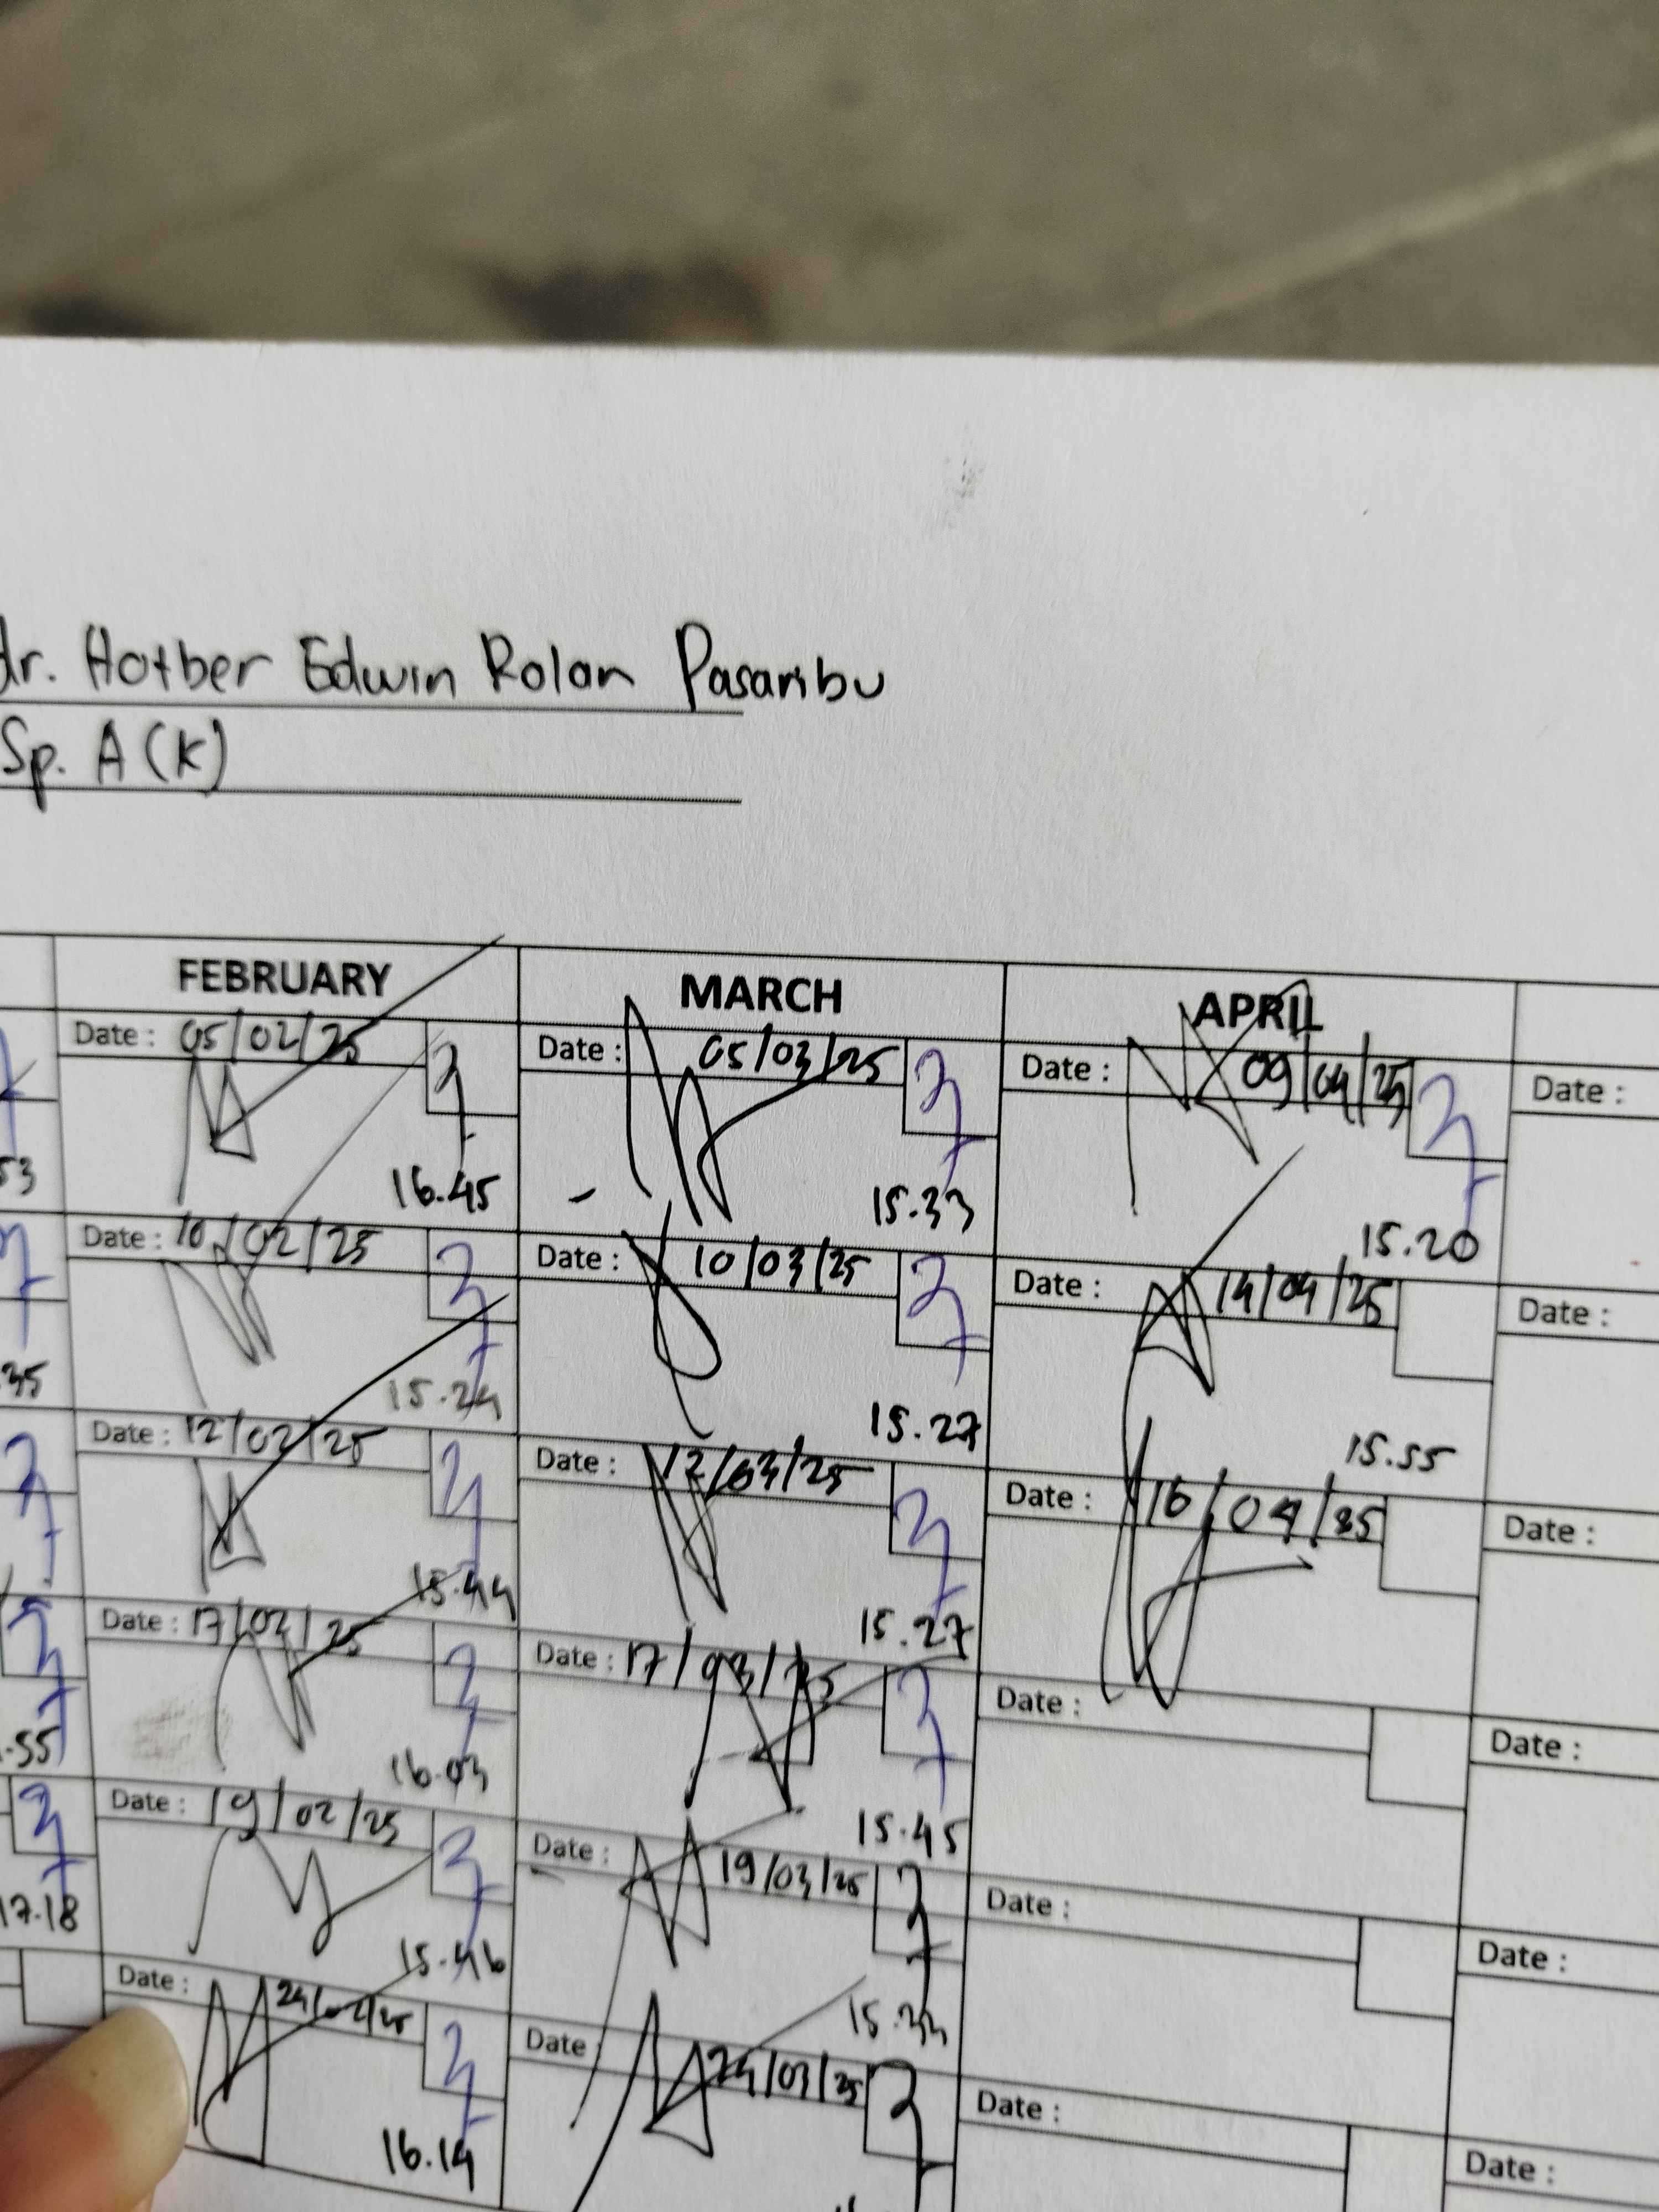 dr. Hotber Edwin Rolan Pasaribu
Sp. A (K)
FEBRUARY MARCH APRIL
Date : 05/02/25 Date : 05/03/25 Date : 09/04/25 Date :
53 16.45 15.33 15.20
Date : 10/02/25 Date : 10/03/25 Date : 14/04/25 Date :
.35 15.24 15.27 15.55
Date : 12/02/25 Date : 12/03/25 Date : 16/04/25 Date :
15.44 15.27
Date : 17/02/25 Date : 17/03/25 Date : Date :
.55 16.03 15.45
Date : 19/02/25 Date : 19/03/25 Date : Date :
17.18 15.46 15.33
Date : 24/02/25 Date 24/03/25 Date : Date :
16.14